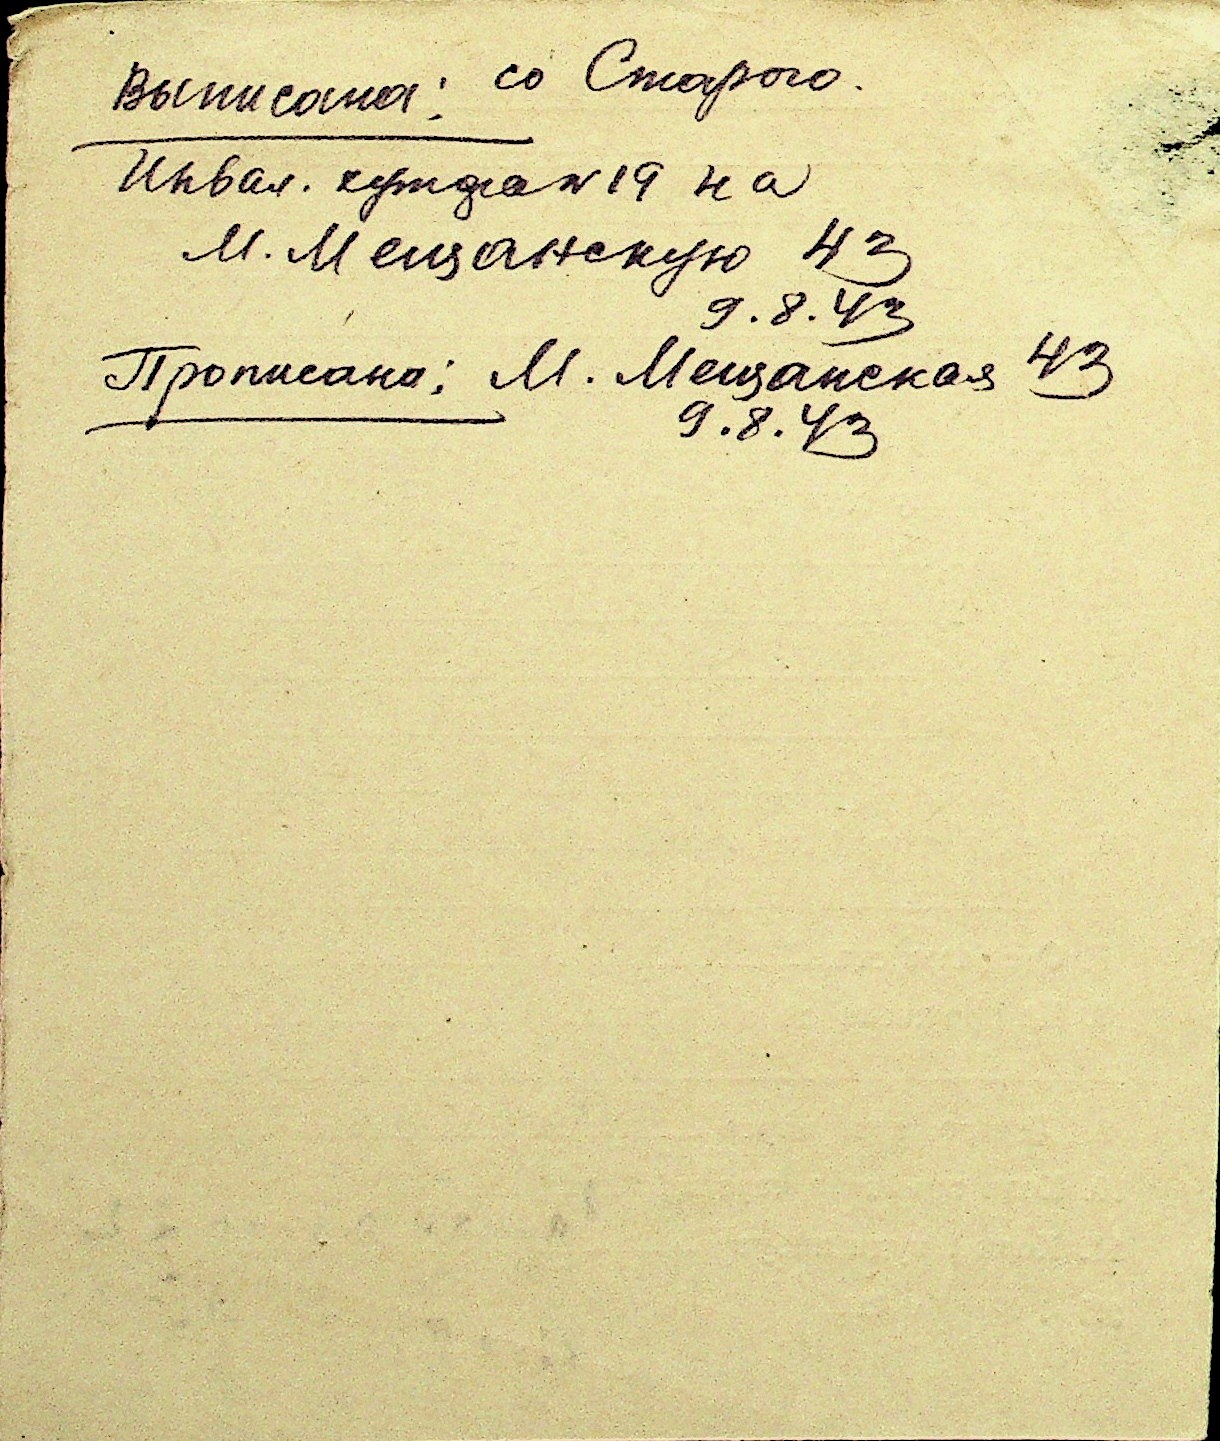 Выписана: со Старого.
Инвал. хутора N 19 на
М. Мещанскую 43
9.8.43
Прописана: М. Мещанская 43
9.8.43